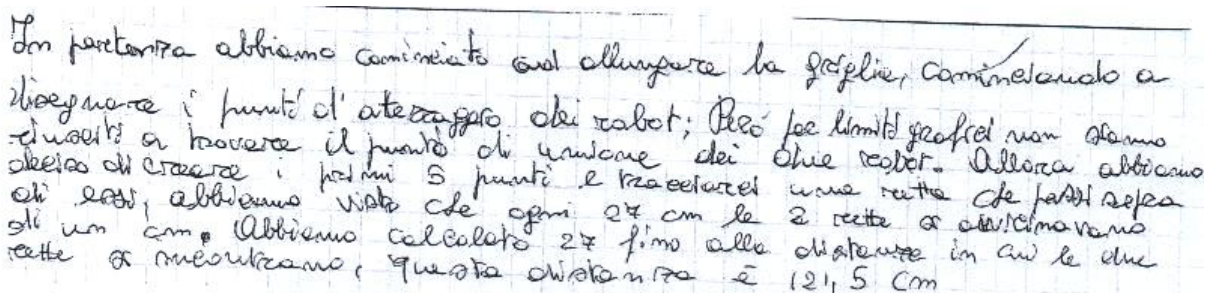 In partenza abbiamo cominciato ad allungare la griglia, cominciando a
disegnare i punti d'aterraggio dei robot; Però per limiti grafici non siamo
riusciti a trovare il punto di unione dei due robot. Allora abbiamo
deciso di creare i primi 5 punti e tracciarci una retta che passi sopra
di essi, abbiamo visto che ogni 27 cm le 2 rette si avvicinavano
di un cm. Abbiamo calcolato 27 fino alla distanza in cui le due
rette si incontrano, questa distanza è 121,5 cm